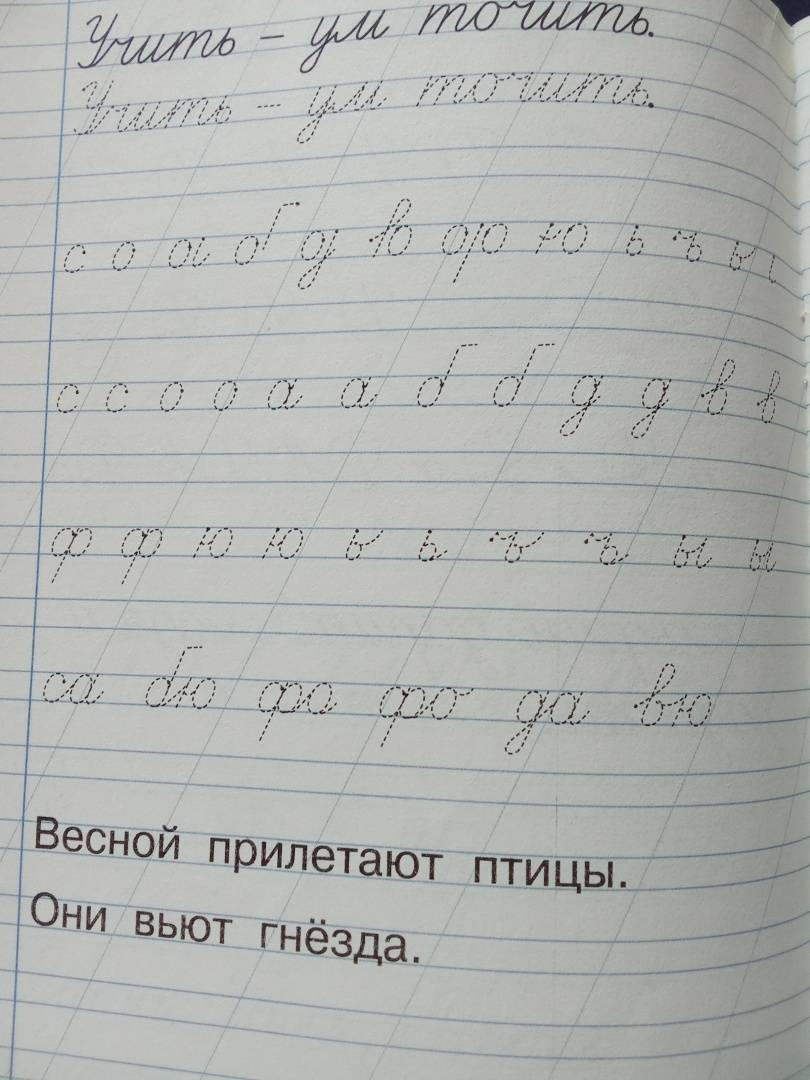 Учить – ум точить.
Учить – ум точить.
с о а б д в ф ю ь ъ ы
с с о о а а б б д д в в
ф ф ю ю ь ь ъ ъ ы ы
са бю фо фо да вю
Весной прилетают птицы.
Они вьют гнёзда.